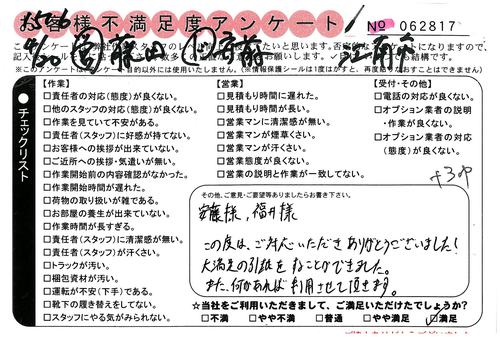 お客様不満足度アンケート
No 062817
※このアンケートはアンケート目的以外には使用いたしません。（※情報保護シールは1度はがすと、再度貼りなおすことはできません）
チェックリスト
【作業】
□責任者の対応（態度）が良くない。
□他のスタッフの対応（態度）が良くない。
□作業を見ていて不安がある。
□責任者（スタッフ）に好感が持てない。
□お客様への挨拶が出来ていない。
□ご近所への挨拶・気遣いが無い。
□作業開始前の内容確認がなかった。
□作業開始時間が遅れた。
□荷物の取り扱いが雑である。
□お部屋の養生が出来ていない。
□作業時間が長すぎる。
□責任者（スタッフ）に清潔感が無い。
□責任者（スタッフ）が汗くさい。
□トラックが汚い。
□梱包資材が汚い。
□運転が不安（下手）である。
□靴下の履き替えをしてない。
□スタッフにやる気がみられない。
【営業】
□見積もり時間に遅れた。
□見積もり時間が長い。
□営業マンに清潔感が無い。
□営業マンが煙草くさい。
□営業マンが汗くさい。
□営業態度が良くない。
□営業の説明と作業が一致してない。
【受付・その他】
□電話の対応が良くない。
□オプション業者の説明
・作業が良くない。
□オプション業者の対応
（態度）が良くない。
その他、ご意見・ご要望等ありましたらお書き下さい。
安藤様、福井様
この度は、ご対応いただきありがとうございました！
大満足の引越をすることができました。
また、何かあれば利用させて頂きます。
☆当社をご利用いただきまして、ご満足いただけたでしょうか？
□不満 □やや不満 □普通 □やや満足 ☑満足